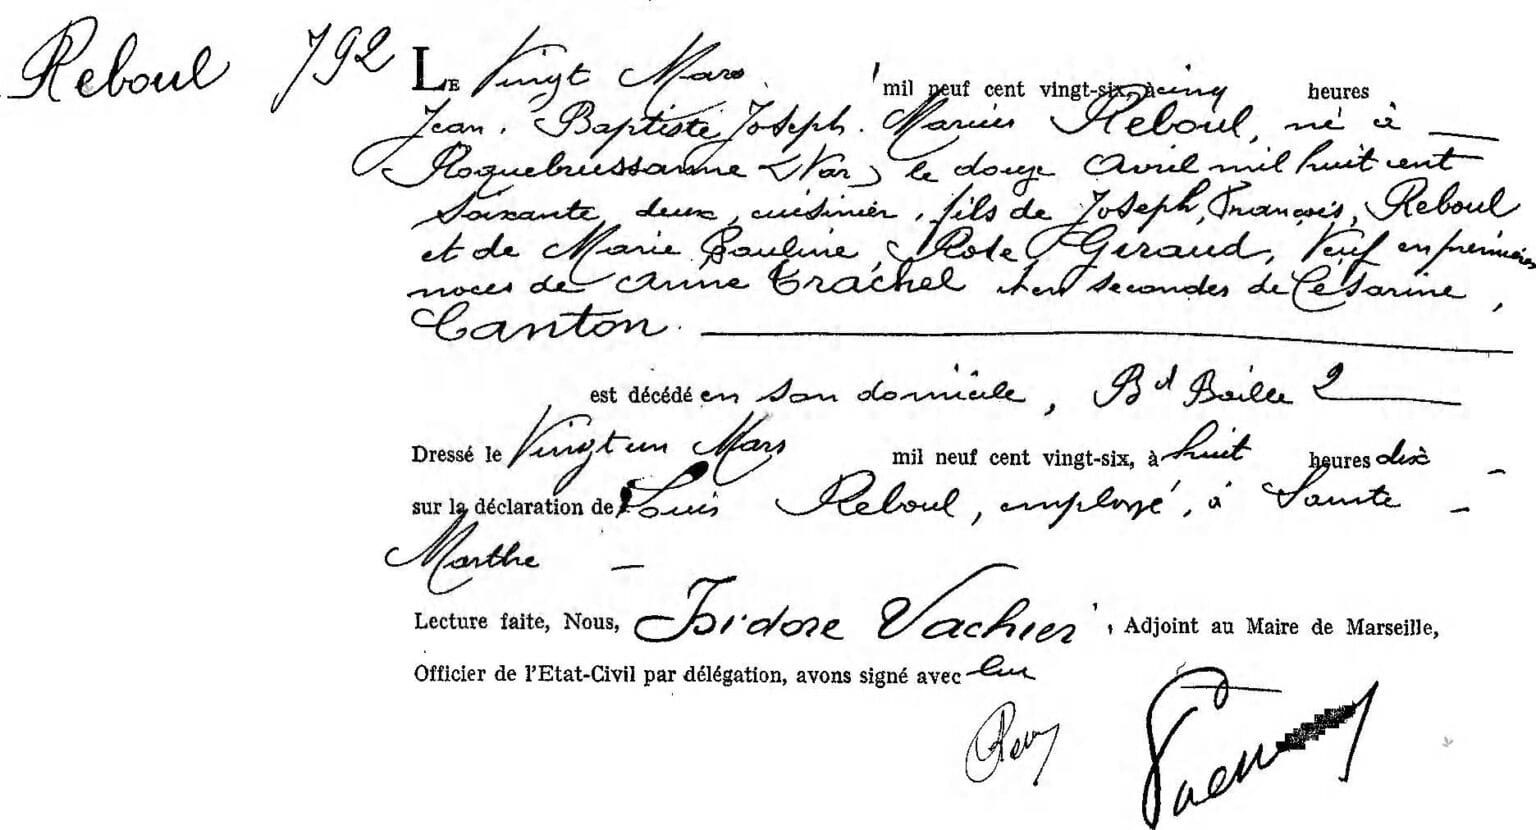 Reboul 792
LE Vingt Mars mil neuf cent vingt-six, à cinq heures
Jean, Baptiste Joseph. Marius Reboul, né à
Roquebrussanne (Var) le douze Avril mil huit cent
soixante deux, cuisinier, fils de Joseph, François, Reboul
et de Marie Pauline, Rose Giraud, Veuf en premières
noces de Anne Trachel et en secondes de Césarine,
Canton.
est décédé en son domicile, Bd Baille 2
Dressé le Vingt un Mars mil neuf cent vingt-six, à huit heures dix
sur la déclaration de Louis Reboul, employé, à Sainte
Marthe
Lecture faite, Nous, Isidore Vachier, Adjoint au Maire de Marseille,
Officier de l'Etat-Civil par délégation, avons signé avec lui